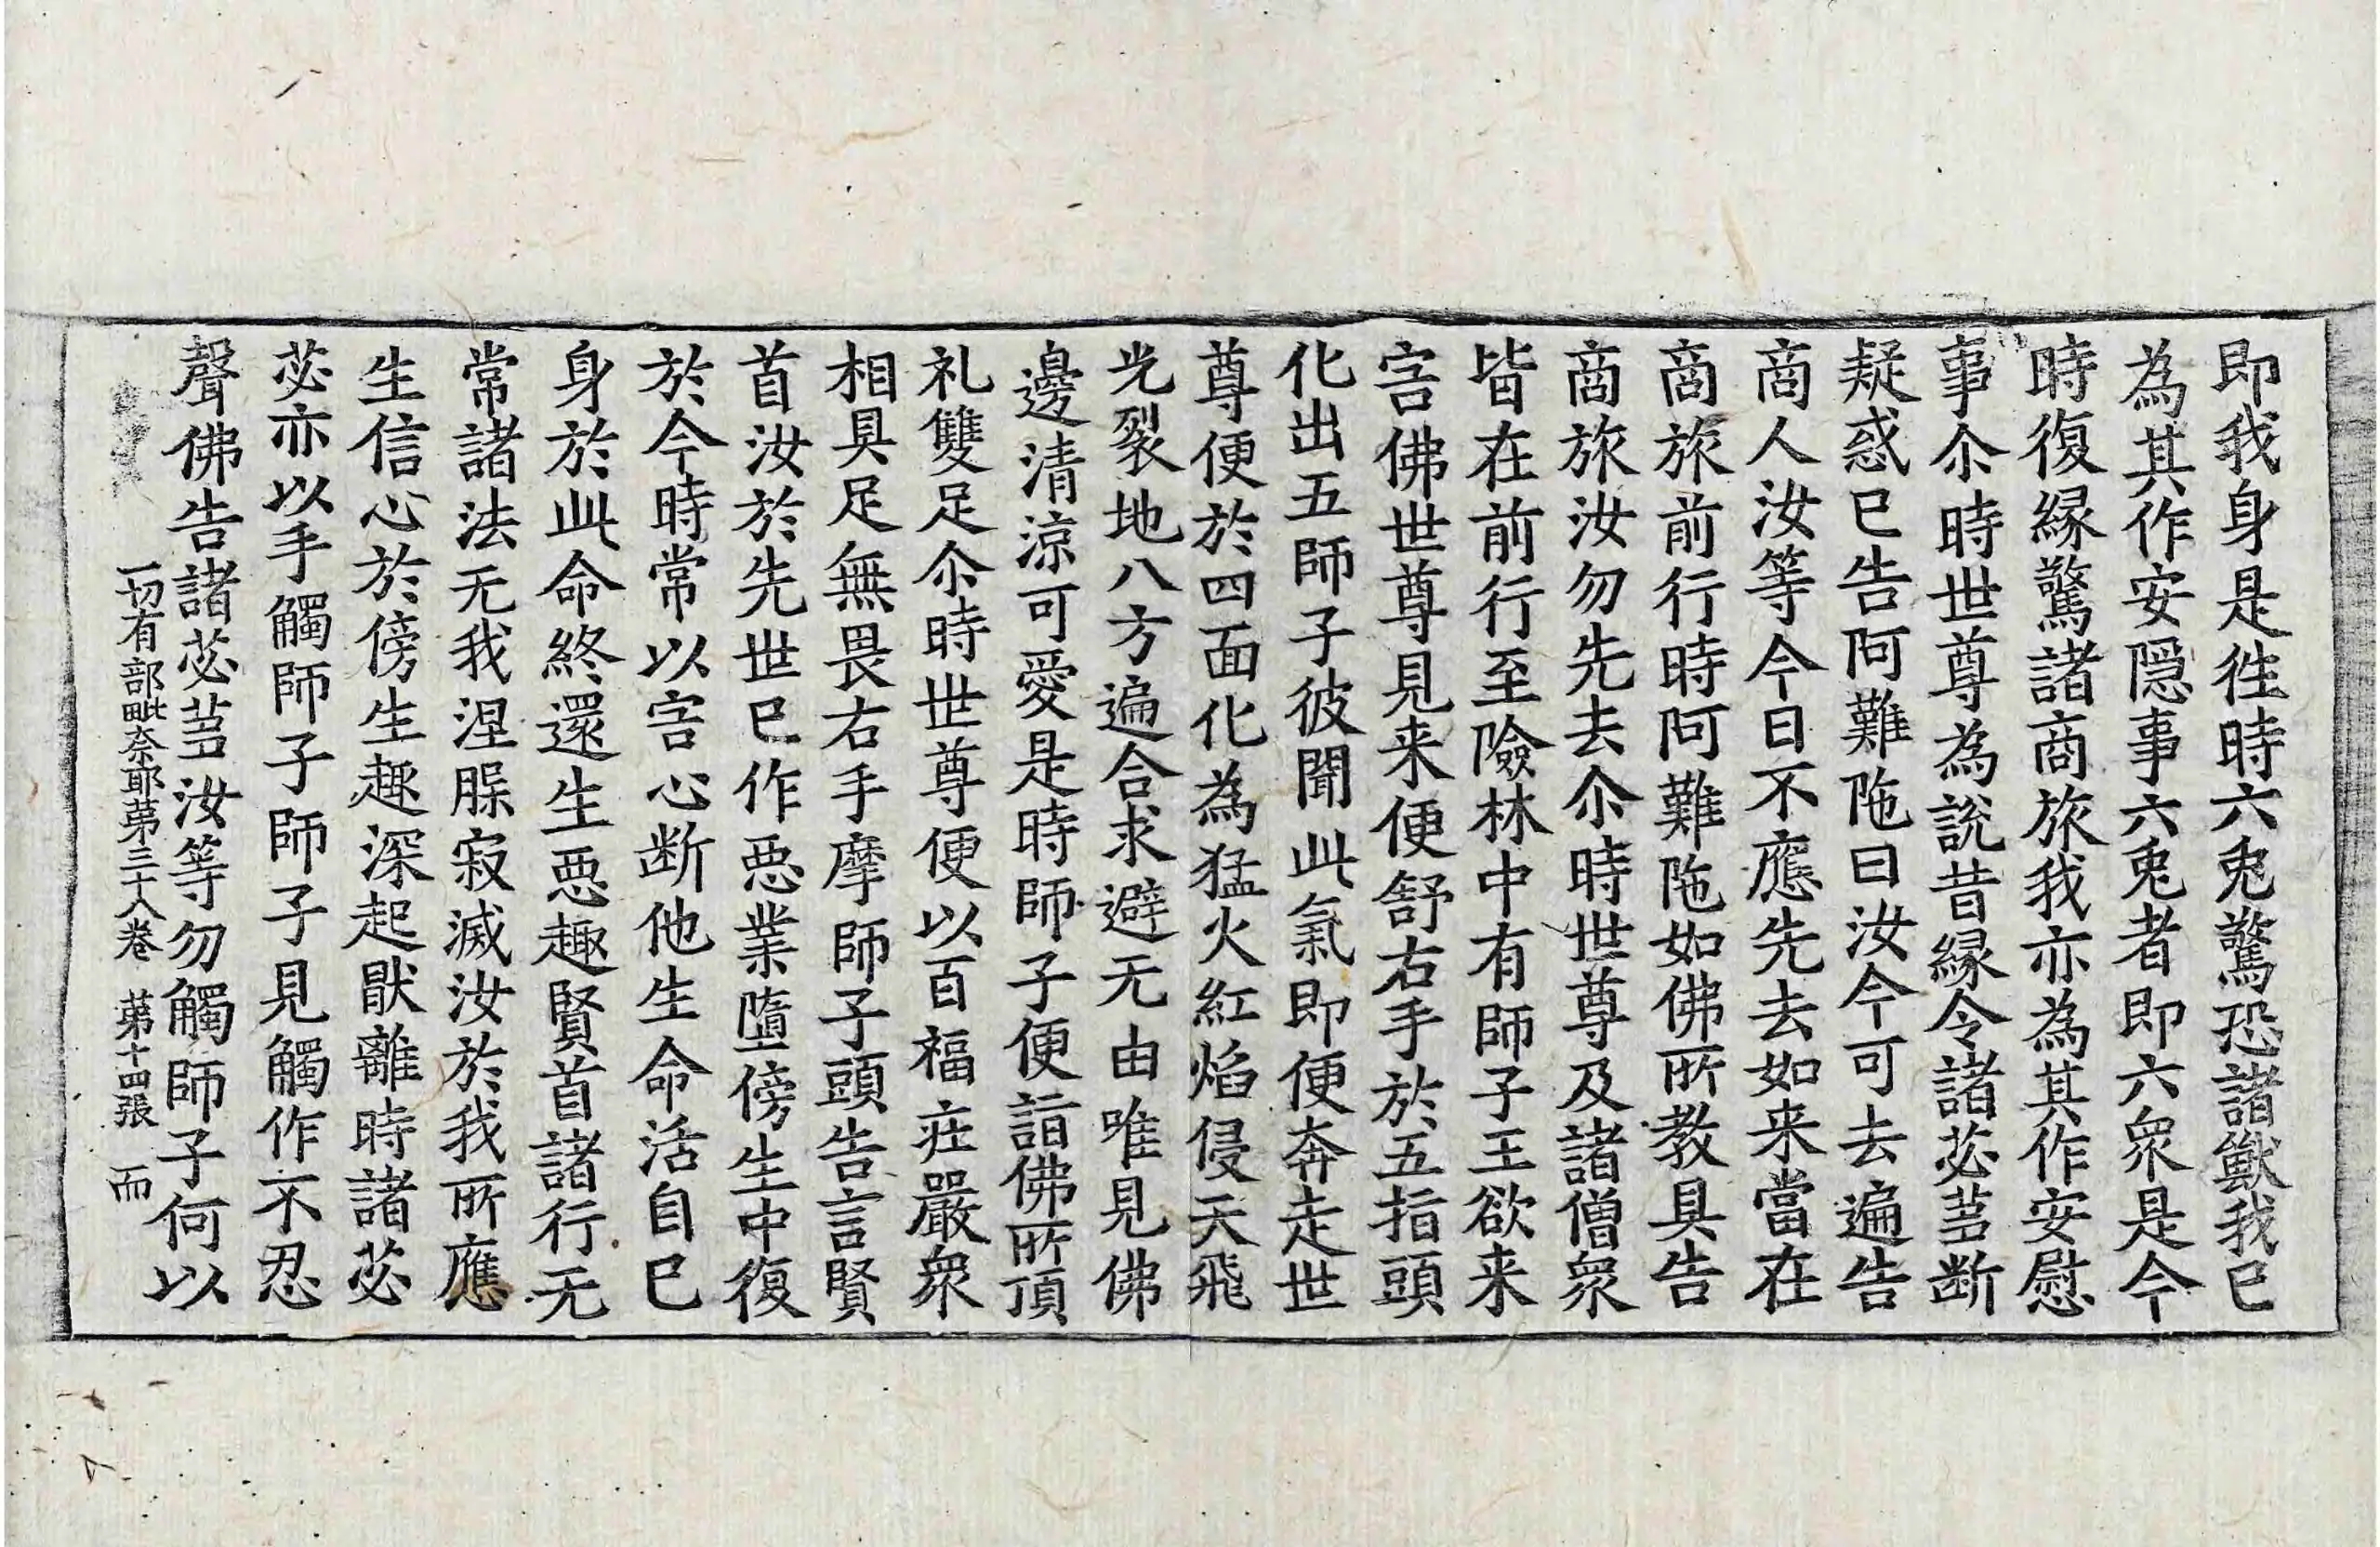 即我身是徃時六兎驚恐諸獸我已
為其作安隠事六兎者即六衆是今
時復縁驚諸商旅我亦為其作安慰
事尒時世尊為說昔縁令諸苾蒭断
疑惑已告阿難陁曰汝今可去遍告
商人汝等今日不應先去如来當在
商旅前行時阿難陁如佛所教具告
商旅汝勿先去尒時世尊及諸僧衆
皆在前行至險林中有師子王欲来
害佛世尊見来便舒右手於五指頭
化出五師子彼聞此氣即便奔走世
尊便於四面化為猛火紅焰侵天飛
光裂地八方遍合求避无由唯見佛
邊清涼可愛是時師子便詣佛所頂
礼雙足尒時世尊便以百福莊嚴衆
相具足無畏右手摩師子頭告言賢
首汝於先世已作惡業墮傍生中復
於今時常以害心断他生命活自已
身於此命終還生惡趣賢首諸行无
常諸法无我涅槃寂滅汝於我所應
生信心於傍生趣深起猒離時諸苾
苾亦以手觸師子師子見觸作不忍
聲佛告諸苾蒭汝等勿觸師子何以
一切有部毗奈耶第三十八卷 第十四張 而